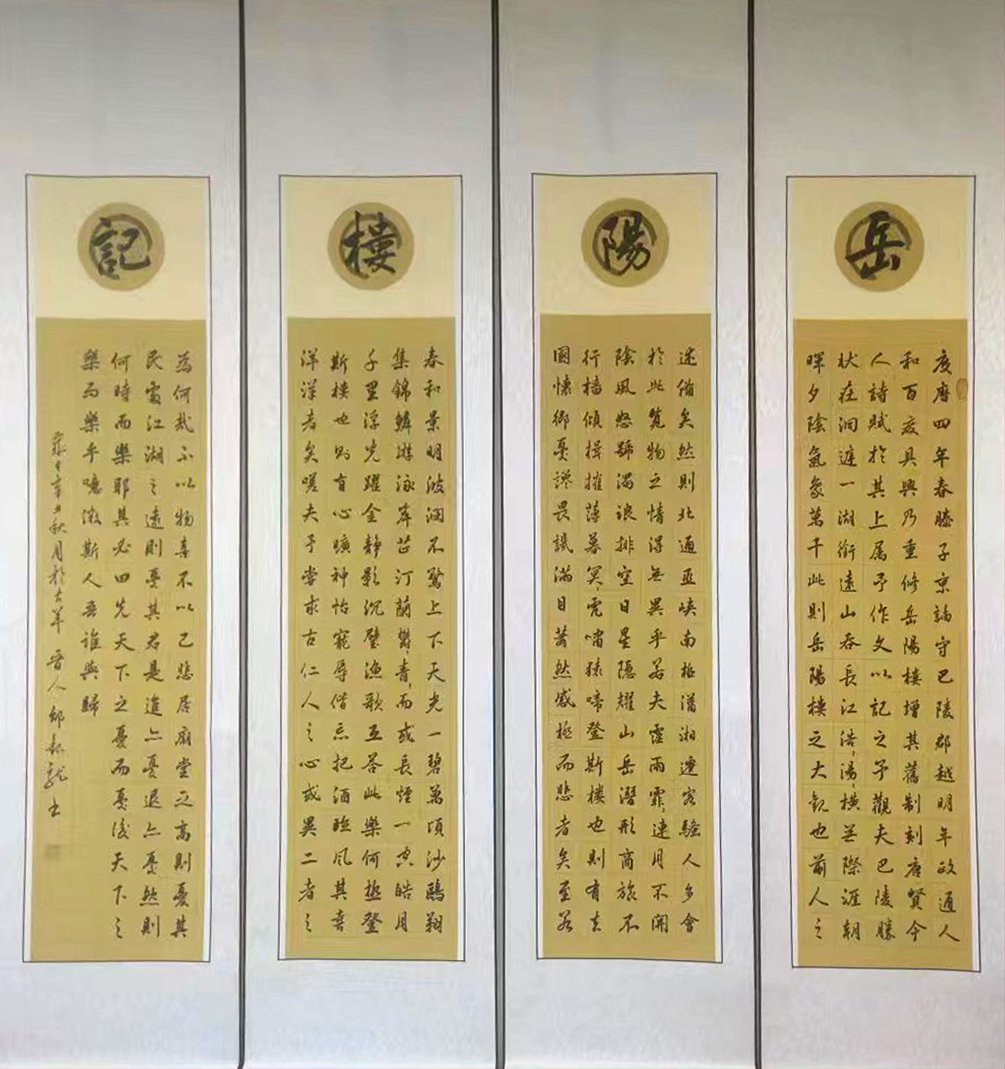 岳
慶曆四年春滕子京謫守巴陵郡越明年政通人
和百廢具興乃重修岳陽樓增其舊制刻唐賢今
人詩賦於其上属予作文以記之予觀夫巴陵勝
狀在洞庭一湖銜遠山吞長江浩〻湯〻橫無際涯朝
暉夕陰氣象萬千此則岳陽樓之大觀也前人之
陽
述備矣然則北通巫峽南極瀟湘遷客騷人多會
於此覽物之情得無異乎若夫霪雨霏〻連月不開
陰風怒號濁浪排空日星隱耀山岳潛形商旅不
行檣傾楫摧薄暮冥〻虎嘯猿啼登斯樓也則有去
國懷鄉憂讒畏譏滿目蕭然感極而悲者矣至若
樓
春和景明波瀾不驚上下天光一碧萬頃沙鷗翔
集錦鱗游泳岸芷汀蘭鬱〻青〻而或長煙一空皓月
千里浮光躍金靜影沉璧漁歌互答此樂何極登
斯樓也則有心曠神怡寵辱偕忘把酒臨風其喜
洋洋者矣嗟夫予嘗求古仁人之心或異二者之
記
為何哉不以物喜不以己悲居廟堂之高則憂其
民處江湖之遠則憂其君是進亦憂退亦憂然則
何時而樂耶其必曰先天下之憂而憂後天下之
樂而樂乎噫微斯人吾誰與歸
辛丑秋月於晉人郝起龍书